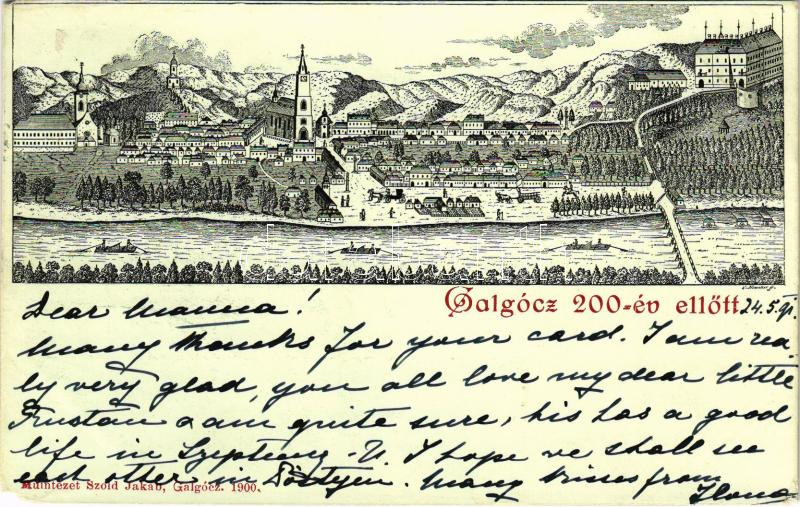 Galgócz 200-év ellőtt
24.5.
Dear Manna!
Many thanks for your card. I am rea-
ly very glad, you all love my dear little
& am quite sure, his has a good
life in I hope we shall see
each other in Pöstyén. Many kisses from
Ilona
Műintézet Szold Jakab, Galgócz. 1900.